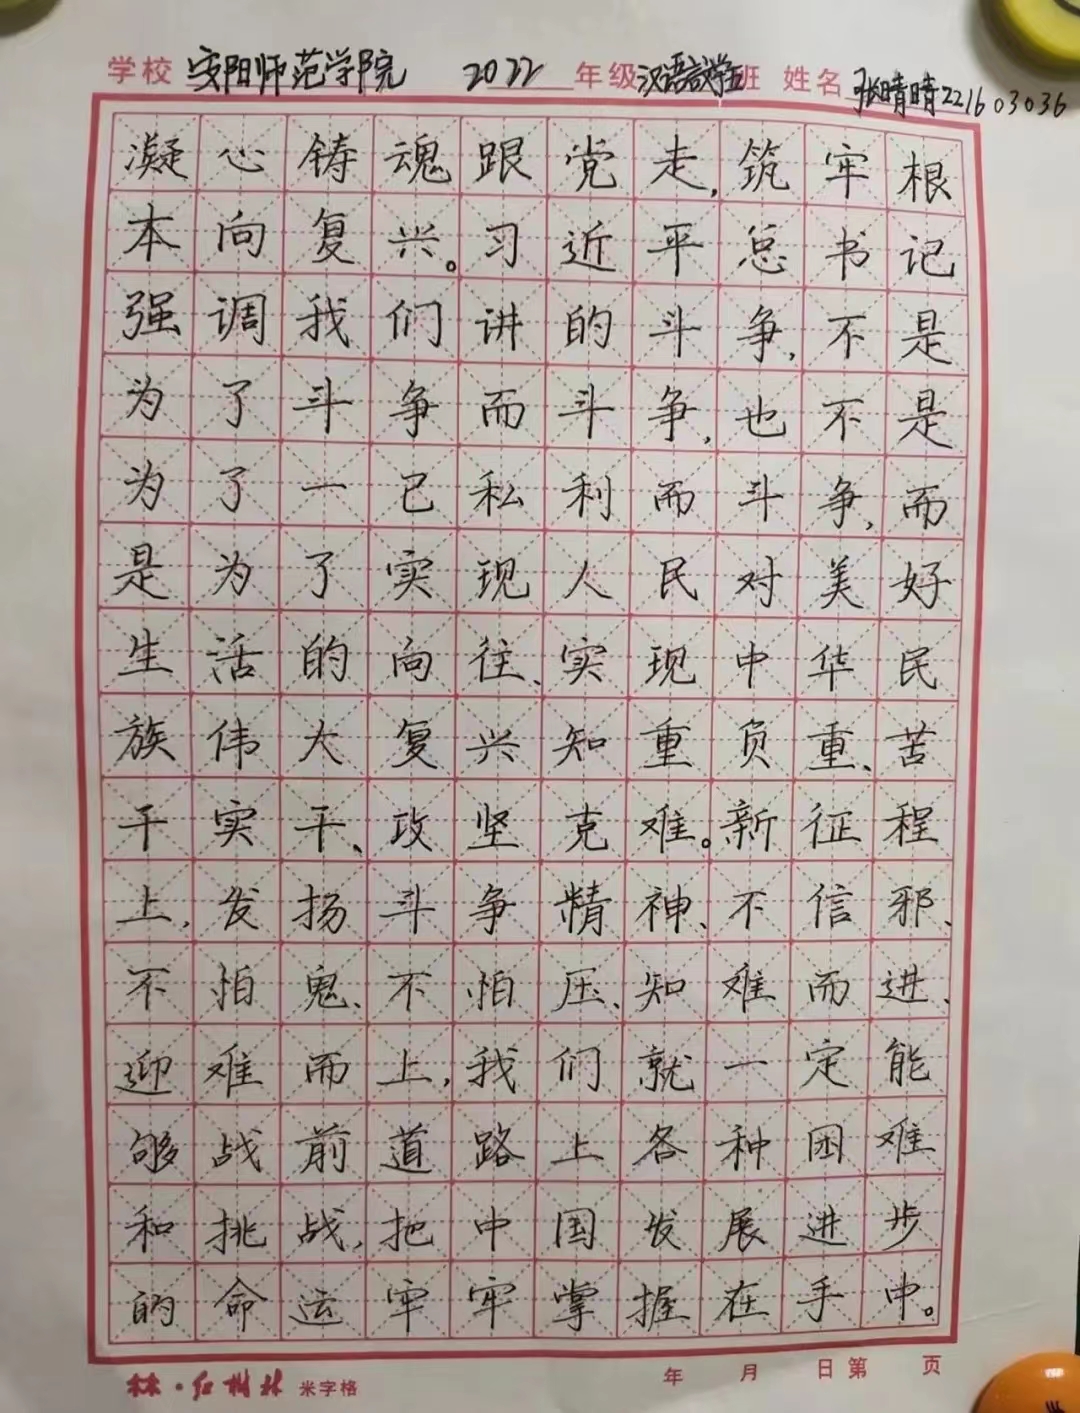 学校 安阳师范学院 2022 年级 汉语言文学五 班 姓名 张晴晴221603036
凝心铸魂跟党走,筑牢根
本向复兴。习近平总书记
强调我们讲的斗争,不是
为了斗争而斗争,也不是
为了一己私利而斗争,而
是为了实现人民对美好
生活的向往、实现中华民
族伟大复兴知重负重、苦
干实干、攻坚克难。新征程
上,发扬斗争精神、不信邪、
不怕鬼、不怕压、知难而进、
迎难而上,我们就一定能
够战前道路上各种困难
和挑战,把中国发展进步
的命运牢牢掌握在手中。
林·红树林 米字格 年 月 日 第 页